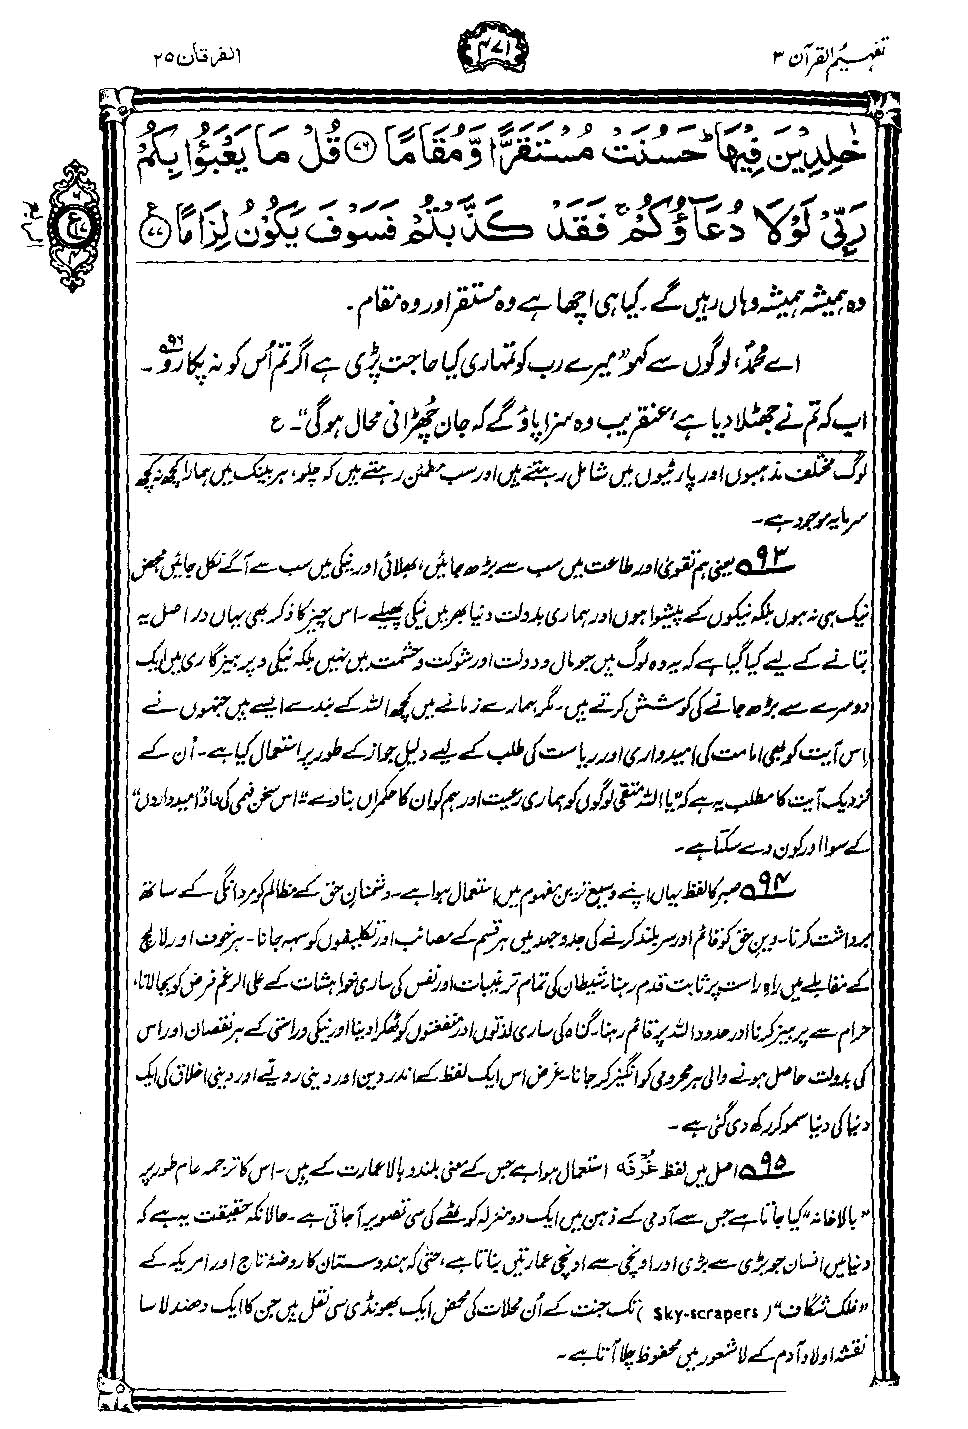 تفہیم القرآن ۳
۴۷۱
الفرقان ۲۵
خٰلِدِيْنَ فِيْهَا ؕ حَسُنَتْ مُسْتَقَرًّا وَّ مُقَامًا ﴿۷۶﴾ قُلْ مَا يَعْبَؤُا بِكُمْ
رَبِّيْ لَوْلَا دُعَآؤُكُمْ ۚ فَقَدْ كَذَّبْتُمْ فَسَوْفَ يَكُوْنُ لِزَامًا ﴿۷۷﴾ ع
وہ ہمیشہ ہمیشہ وہاں رہیں گے۔ کیا ہی اچھا ہے وہ مستقر اور وہ مقام۔
اے محمدؐ، لوگوں سے کہو "میرے رب کو تمہاری کیا حاجت پڑی ہے اگر تم اُس کو نہ پکارو ۹۶۔
اب کہ تم نے جھٹلا دیا ہے، عنقریب وہ سزا پاؤ گے کہ جان چھڑانی محال ہوگی"۔ ع
لوگ مختلف مذہبوں اور پارٹیوں میں شامل رہتے ہیں اور سب مطمئن رہتے ہیں کہ چلو، ہر بینک میں ہمارا کچھ نہ کچھ
سرمایہ موجود ہے۔
۹۳ یعنی ہم تقویٰ اور طاعت میں سب سے بڑھ جائیں، بھلائی اور نیکی میں سب سے آگے نکل جائیں محض
نیک ہی نہ ہوں بلکہ نیکوں کے پیشوا ہوں اور ہماری بدولت دنیا بھر میں نیکی پھیلے۔ اس چیز کا ذکر بھی یہاں دراصل یہ
بتانے کے لیے کیا گیا ہے کہ یہ وہ لوگ ہیں جو مال و دولت اور شوکت و حشمت میں نہیں بلکہ نیکی و پرہیزگاری میں ایک
دوسرے سے بڑھ جانے کی کوشش کرتے ہیں۔ مگر ہمارے زمانے میں کچھ اللہ کے بندے ایسے ہیں جنہوں نے
اس آیت کو بھی امامت کی امیدواری اور ریاست کی طلب کے لیے دلیلِ جواز کے طور پر استعمال کیا ہے۔ اُن کے
نزدیک آیت کا مطلب یہ ہے کہ "یا اللہ متقی لوگوں کو ہماری رعیت اور ہم کو ان کا حکمراں بنا دے"۔ اس سخن فہمی کی داد "امیدواروں"
کے سوا اور کون دے سکتا ہے۔
۹۴ صبر کا لفظ یہاں اپنے وسیع ترین مفہوم میں استعمال ہوا ہے۔ دشمنانِ حق کے مظالم کو مردانگی کے ساتھ
برداشت کرنا۔ دینِ حق کو قائم اور سربلند کرنے کی جدوجہد میں ہر قسم کے مصائب اور تکلیفوں کو سہہ جانا۔ ہر خوف اور لالچ
کے مقابلے میں راہِ راست پر ثابت قدم رہنا۔ شیطان کی تمام ترغیبات اور نفس کی ساری خواہشات کے علی الرغم فرض کو بجا لانا،
حرام سے پرہیز کرنا اور حدود اللہ پر قائم رہنا۔ گناہ کی ساری لذتوں اور منفعتوں کو ٹھکرا دینا اور نیکی و راستی کے ہر نقصان اور اس
کی بدولت حاصل ہونے والی ہر محرومی کو انگیز کر جانا۔ غرض اس ایک لفظ کے اندر دین اور دینی رویّے اور دینی اخلاق کی ایک
دنیا کی دنیا سمو کر رکھ دی گئی ہے۔
۹۵ اصل میں لفظ غُرْفَہ استعمال ہوا ہے جس کے معنی بلند و بالا عمارت کے ہیں۔ اس کا ترجمہ عام طور پر
"بالا خانہ" کیا جاتا ہے جس سے آدمی کے ذہن میں ایک دو منزلہ کوٹھے کی سی تصویر آجاتی ہے۔ حالانکہ حقیقت یہ ہے کہ
دنیا میں انسان جو بڑی سے بڑی اور اونچی سے اونچی عمارتیں بناتا ہے، حتیٰ کہ ہندوستان کا روضۂ تاج اور امریکہ کے
"فلک شگاف" (Sky-scrapers) تک جنت کے اُن محلات کی محض ایک بھونڈی سی نقل ہیں جن کا ایک دھندلا سا
نقشہ اولادِ آدم کے لاشعور میں محفوظ چلا آتا ہے۔